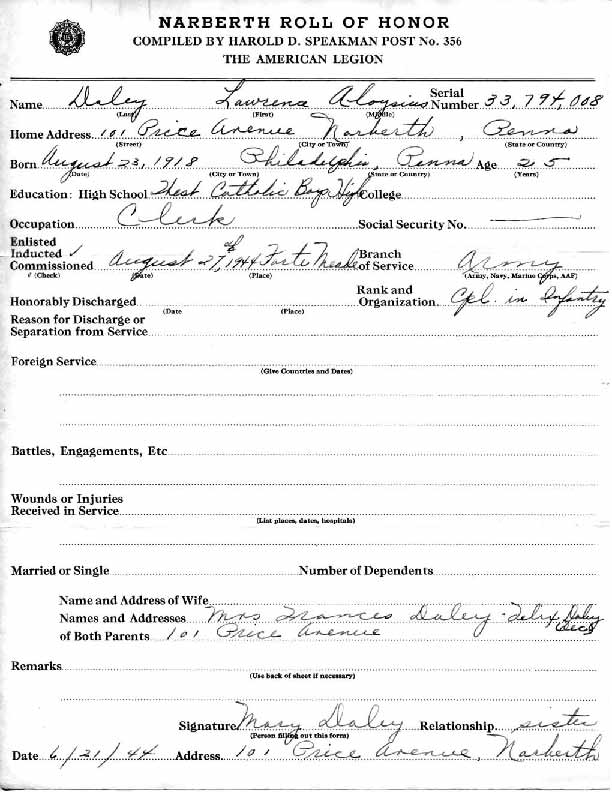 NARBERTH ROLL OF HONOR
COMPILED BY HAROLD D. SPEAKMAN POST No. 356
THE AMERICAN LEGION
Name Daley Lawrence Aloysius Serial Number 33,794,008
(Last) (First) (Middle)
Home Address 101 Price Avenue Narberth, Penna
(Street) (City or Town) (State or Country)
Born August 23, 1918 Philadelphia, Penna Age 25
(Date) (City or Town) (State or Country) (Years)
Education: High School West Catholic Boys High College
Occupation Clerk Social Security No.
Enlisted
Inducted ✓ Branch
Commissioned August 27, 1944 at Forte Meade of Service Army
# (Check) (Date) (Place) (Army, Navy, Marine Corps, AAF)
Rank and
Honorably Discharged Organization. Cpl. in Infantry
(Date (Place)
Reason for Discharge or
Separation from Service
Foreign Service
(Give Countries and Dates)
Battles, Engagements, Etc
Wounds or Injuries
Received in Service
(List places, dates, hospitals)
Married or Single Number of Dependents
Name and Address of Wife
Names and Addresses Mrs Frances Daley - Felix Daley
of Both Parents 101 Price Avenue (dec)
Remarks
(Use back of sheet if necessary)
Signature Mary Daley Relationship sister
(Person filling out this form)
Date 6/21/44 Address. 101 Price Avenue, Narberth